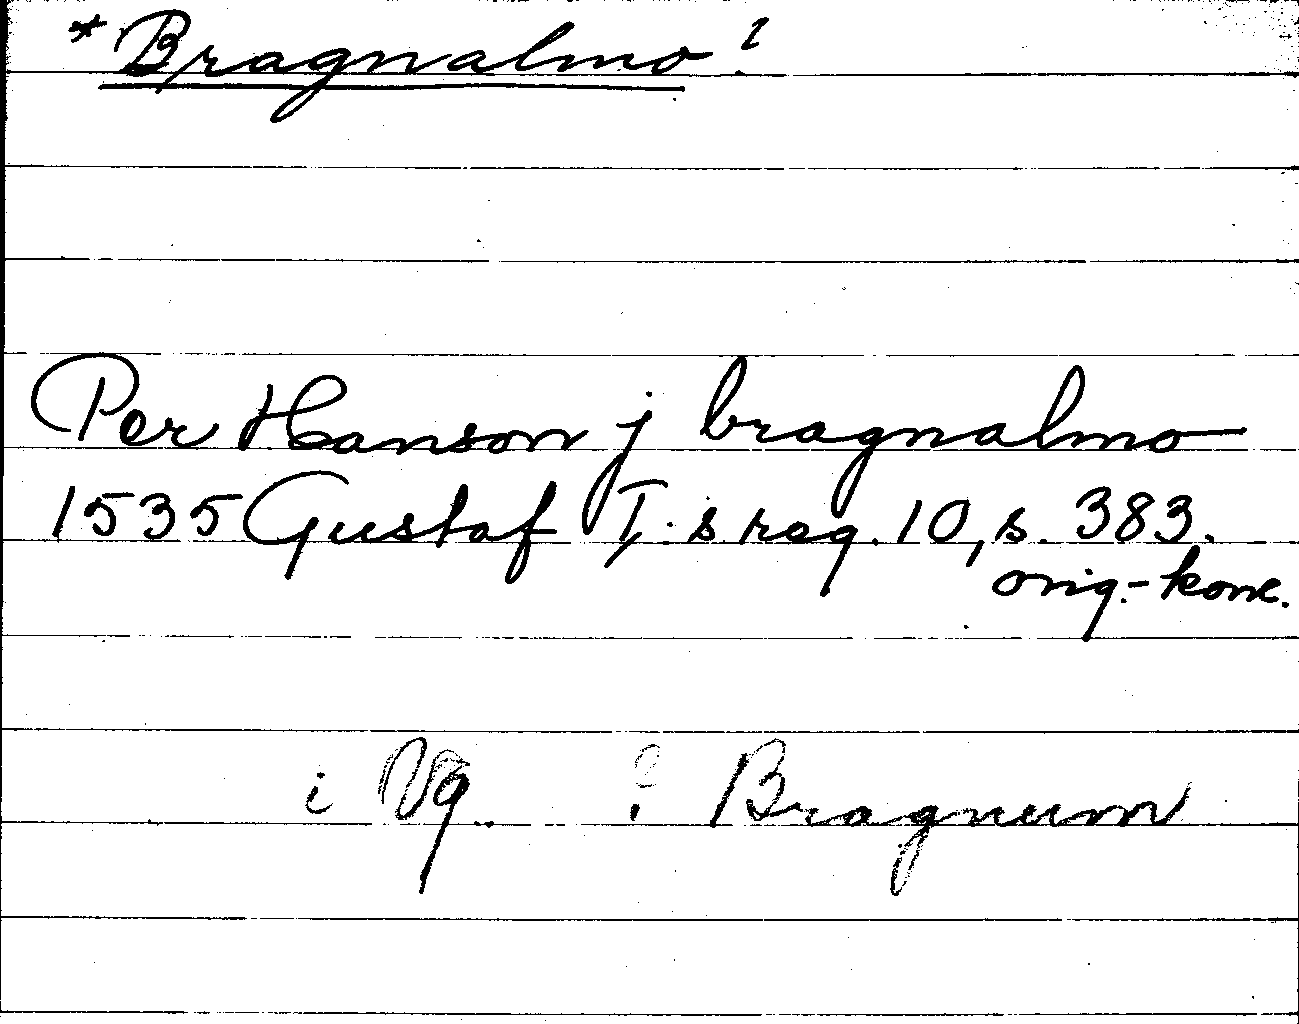 * Bragnalmo?
Per Hanson j bragnalmo
1535 Gustaf I:s reg. 10, s. 383.
orig.-konc.
i Vg. ? Bragnum